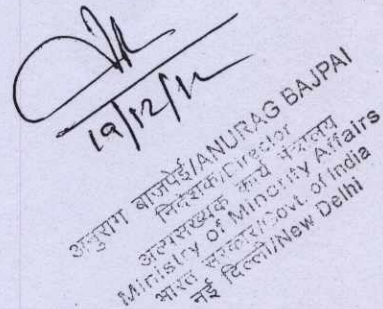 19/12/12
अनुराग बाजपेई/ANURAG BAJPAI
निदेशक/Director
अल्पसंख्यक कार्य मंत्रालय
Ministry of Minority Affairs
भारत सरकार/Govt. of India
नई दिल्ली/New Delhi